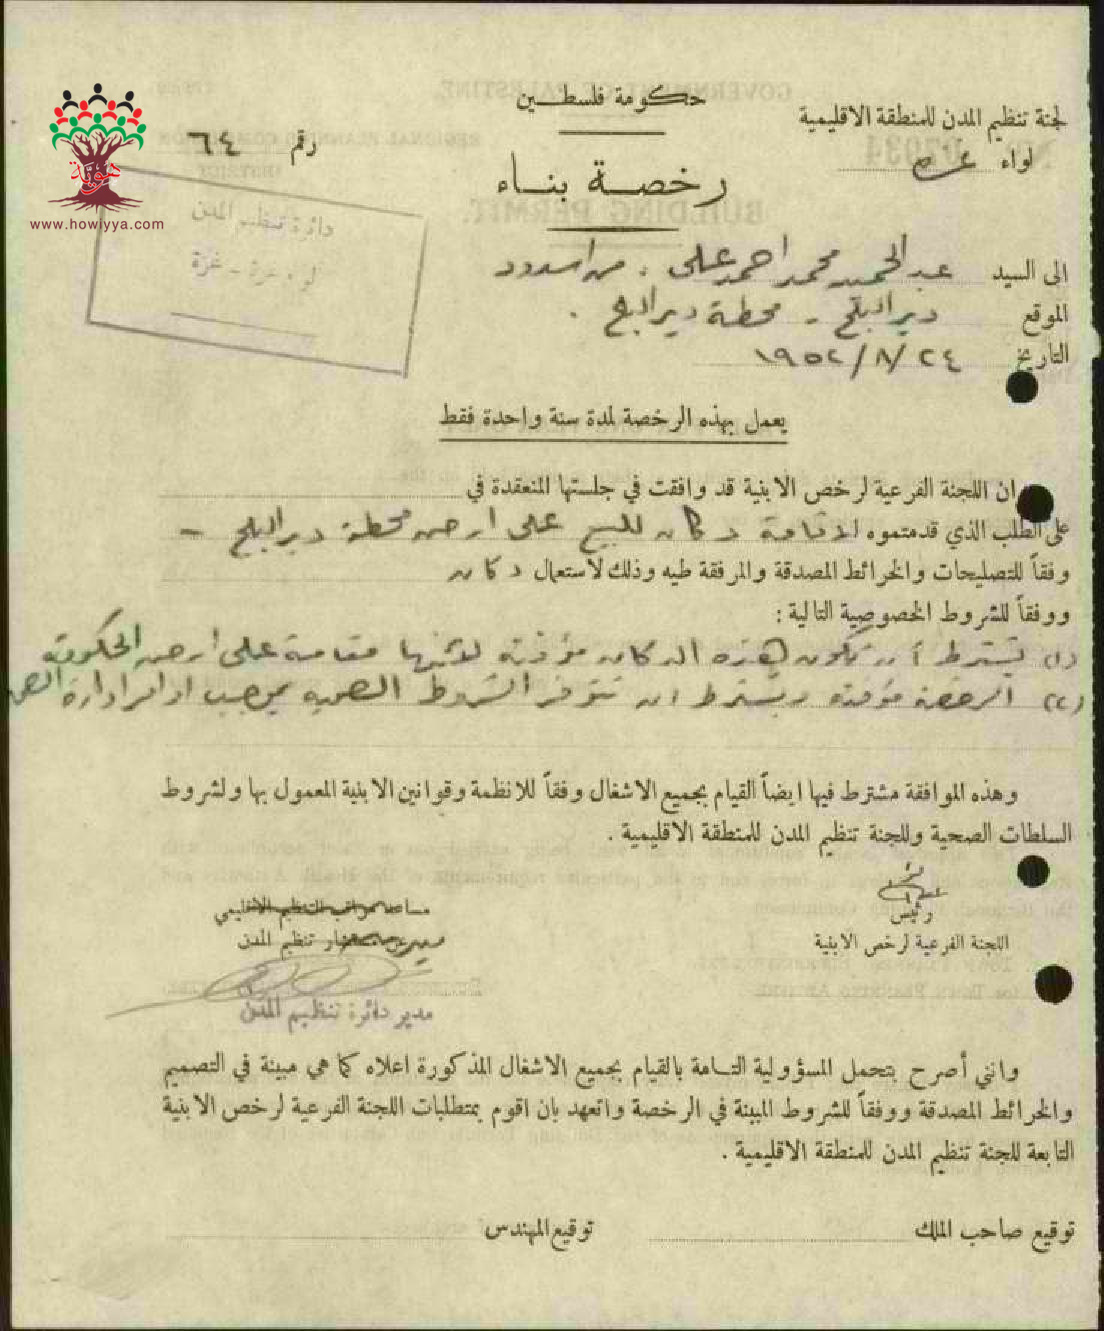 حكومة فلسطين
لجنة تنظيم المدن للمنطقة الاقليمية
لواء غزة
رقم ٦٤
رخصة بناء
هوية
www.howiyya.com
دائرة تنظيم المدن
لواء غزة - غزة
الى السيد عبد الحميد محمد احمد علي . من اسدود
الموقع دير البلح - محطة دير البلح .
التاريخ ٢٤/٨/١٩٥٢
يعمل بهذه الرخصة لمدة سنة واحدة فقط
ان اللجنة الفرعية لرخص الابنية قد وافقت في جلستها المنعقدة في
على الطلب الذي قدمتموه لاقامة دكان للبيع على ارض محطة دير البلح -
وفقاً للتصليحات والخرائط المصدقة والمرفقة طيه وذلك لاستعمال دكان
ووفقاً للشروط الخصوصية التالية :
(١) يشترط أن تكون هذه الدكان مؤقتة لانها مقامة على ارض الحكومة
(٢) الرخصة مؤقتة ويشترط ان تتوفر الشروط الصحية بموجب اوامر ادارة
وهذه الموافقة مشترط فيها ايضاً القيام بجميع الاشغال وفقاً للانظمة وقوانين الابنية المعمول بها ولشروط
السلطات الصحية وللجنة تنظيم المدن للمنطقة الاقليمية .
رئيس
اللجنة الفرعية لرخص الابنية
مساعد مراقب التنظيم الاقليمي
مستشار تنظيم المدن
مدير دائرة تنظيم المدن
وانني أصرح بتحمل المسؤولية التامة بالقيام بجميع الاشغال المذكورة اعلاه كما هي مبينة في التصميم
والخرائط المصدقة ووفقاً للشروط المبينة في الرخصة واتعهد بان اقوم بمتطلبات اللجنة الفرعية لرخص الابنية
التابعة للجنة تنظيم المدن للمنطقة الاقليمية .
توقيع صاحب الملك
توقيع المهندس